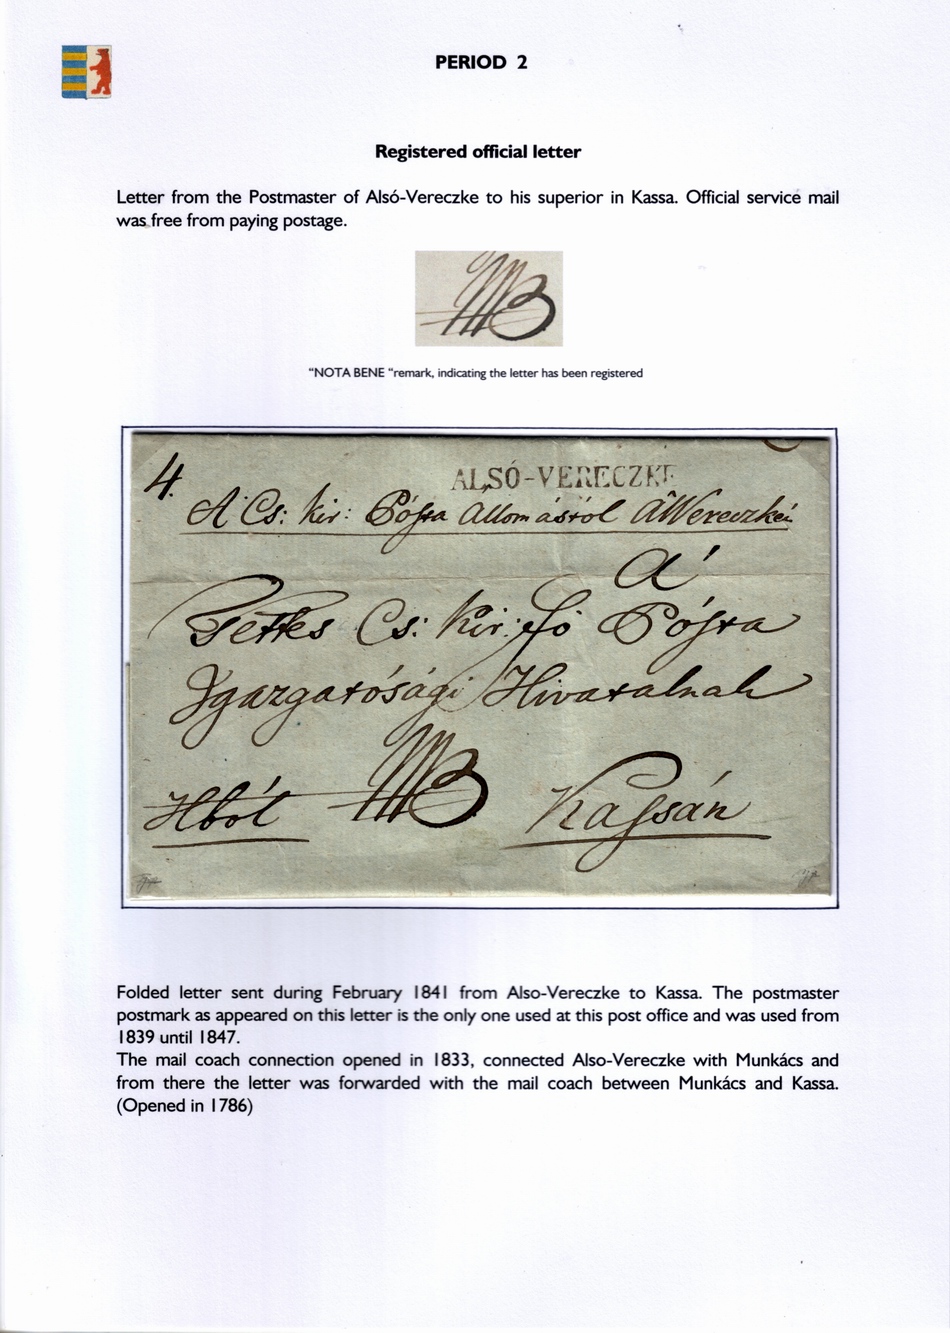 PERIOD 2
Registered official letter
Letter from the Postmaster of Alsó-Vereczke to his superior in Kassa. Official service mail
was free from paying postage.
NB
"NOTA BENE "remark, indicating the letter has been registered
4.
ALSÓ-VERECZKE
A Cs: kir: Pósta Állomástól A Vereczkei
A'
Tettes Cs: Kir: fő Pósta
Igazgatósági Hivatalnak
Hból NB Kassán
Folded letter sent during February 1841 from Also-Vereczke to Kassa. The postmaster
postmark as appeared on this letter is the only one used at this post office and was used from
1839 until 1847.
The mail coach connection opened in 1833, connected Also-Vereczke with Munkács and
from there the letter was forwarded with the mail coach between Munkács and Kassa.
(Opened in 1786)